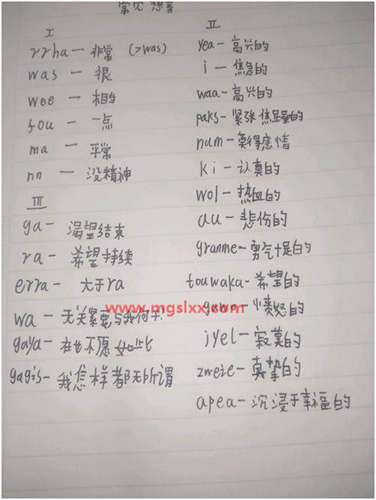 常见
I
rrha — 非常 (>was)
was — 很
wee — 相当
fou — 一点
ma — 平常
nn — 没精神
III
ga — 渴望结束
ra — 希望持续
erra — 大于ra
wa — 无关紧要
gaya —
gagis — 我怎样都无所谓
II
yea — 高兴的
i — 焦急的
waa — 高兴的
paks — 紧张
num — 莫得感情
ki — 认真的
wol — 热血的
au — 悲伤的
granme — 勇气十足的
touwaka — 希望的
愤怒的
jyel — 寂寞的
zweie — 真挚的
apea — 沉浸于幸福的
www.mgslxx.com